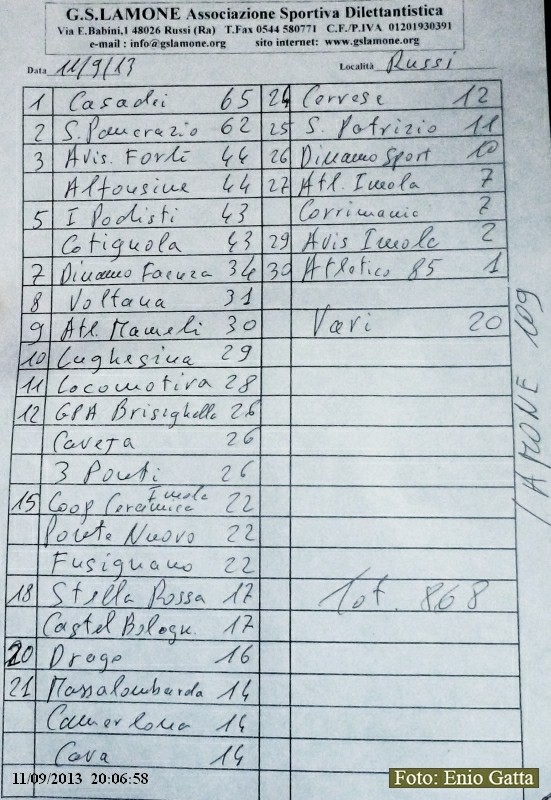 G.S.LAMONE Associazione Sportiva Dilettantistica
Via E.Babini,1 48026 Russi (Ra) T.Fax 0544 580771 C.F./P.IVA 01201930391
e-mail : info@gslamone.org sito internet: www.gslamone.org
Data 11/9/13 Località Russi
1 Casadei 65
2 S. Pancrazio 62
3 Avis. Forlì 44
Alfonsine 44
5 I Podisti 43
Cotignola 43
7 Dinamo Faenza 34
8 Voltana 31
9 Atl. Mameli 30
10 Lughesina 29
11 Locomotiva 28
12 GPA Brisighella 26
Caveja 26
3 Ponti 26
15 Coop Ceramica Imola 22
Ponte Nuovo 22
Fusignano 22
18 Stella Rossa 17
Castel Bologn. 17
20 Drago 16
21 Massalombarda 14
Camerlona 14
Cava 14
24 Correse 12
25 S. Patrizio 11
26 Dinamo Sport 10
27 Atl. Imola 7
Corrimania 7
29 Avis Imola 2
30 Atletico 85 1
Vari 20
Tot. 868
LAMONE 109
11/09/2013 20:06:58
Foto: Enio Gatta